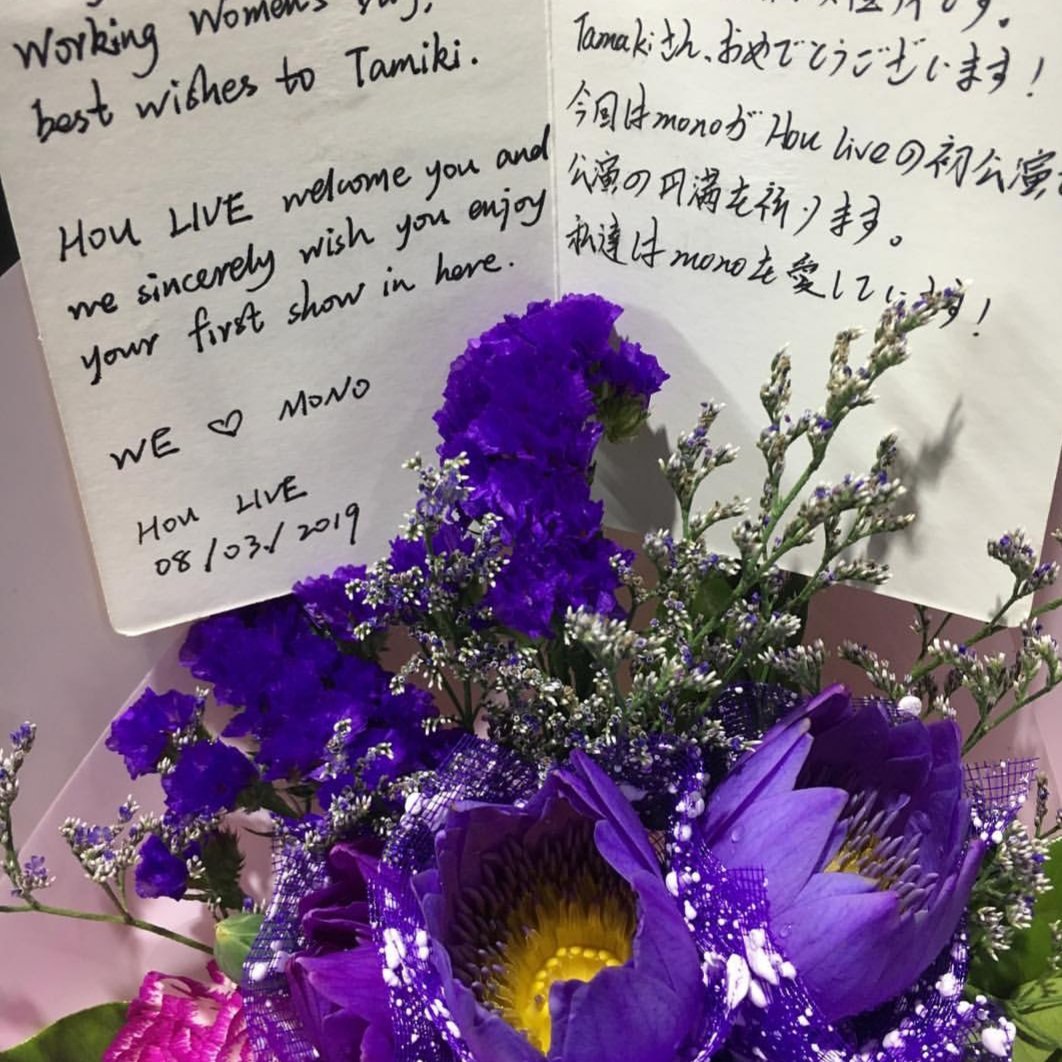 Working Women's Day,
best wishes to Tamiki.
HOU LIVE welcome you and
me sincerely wish you enjoy
your first show in here.
WE ♡ MONO
HOU LIVE
08/03/2019
Tamakiさん、おめでとうございます！
今回はmonoが Hou liveの初公演
公演の円満を祈ります。
私達はmonoを愛しています！